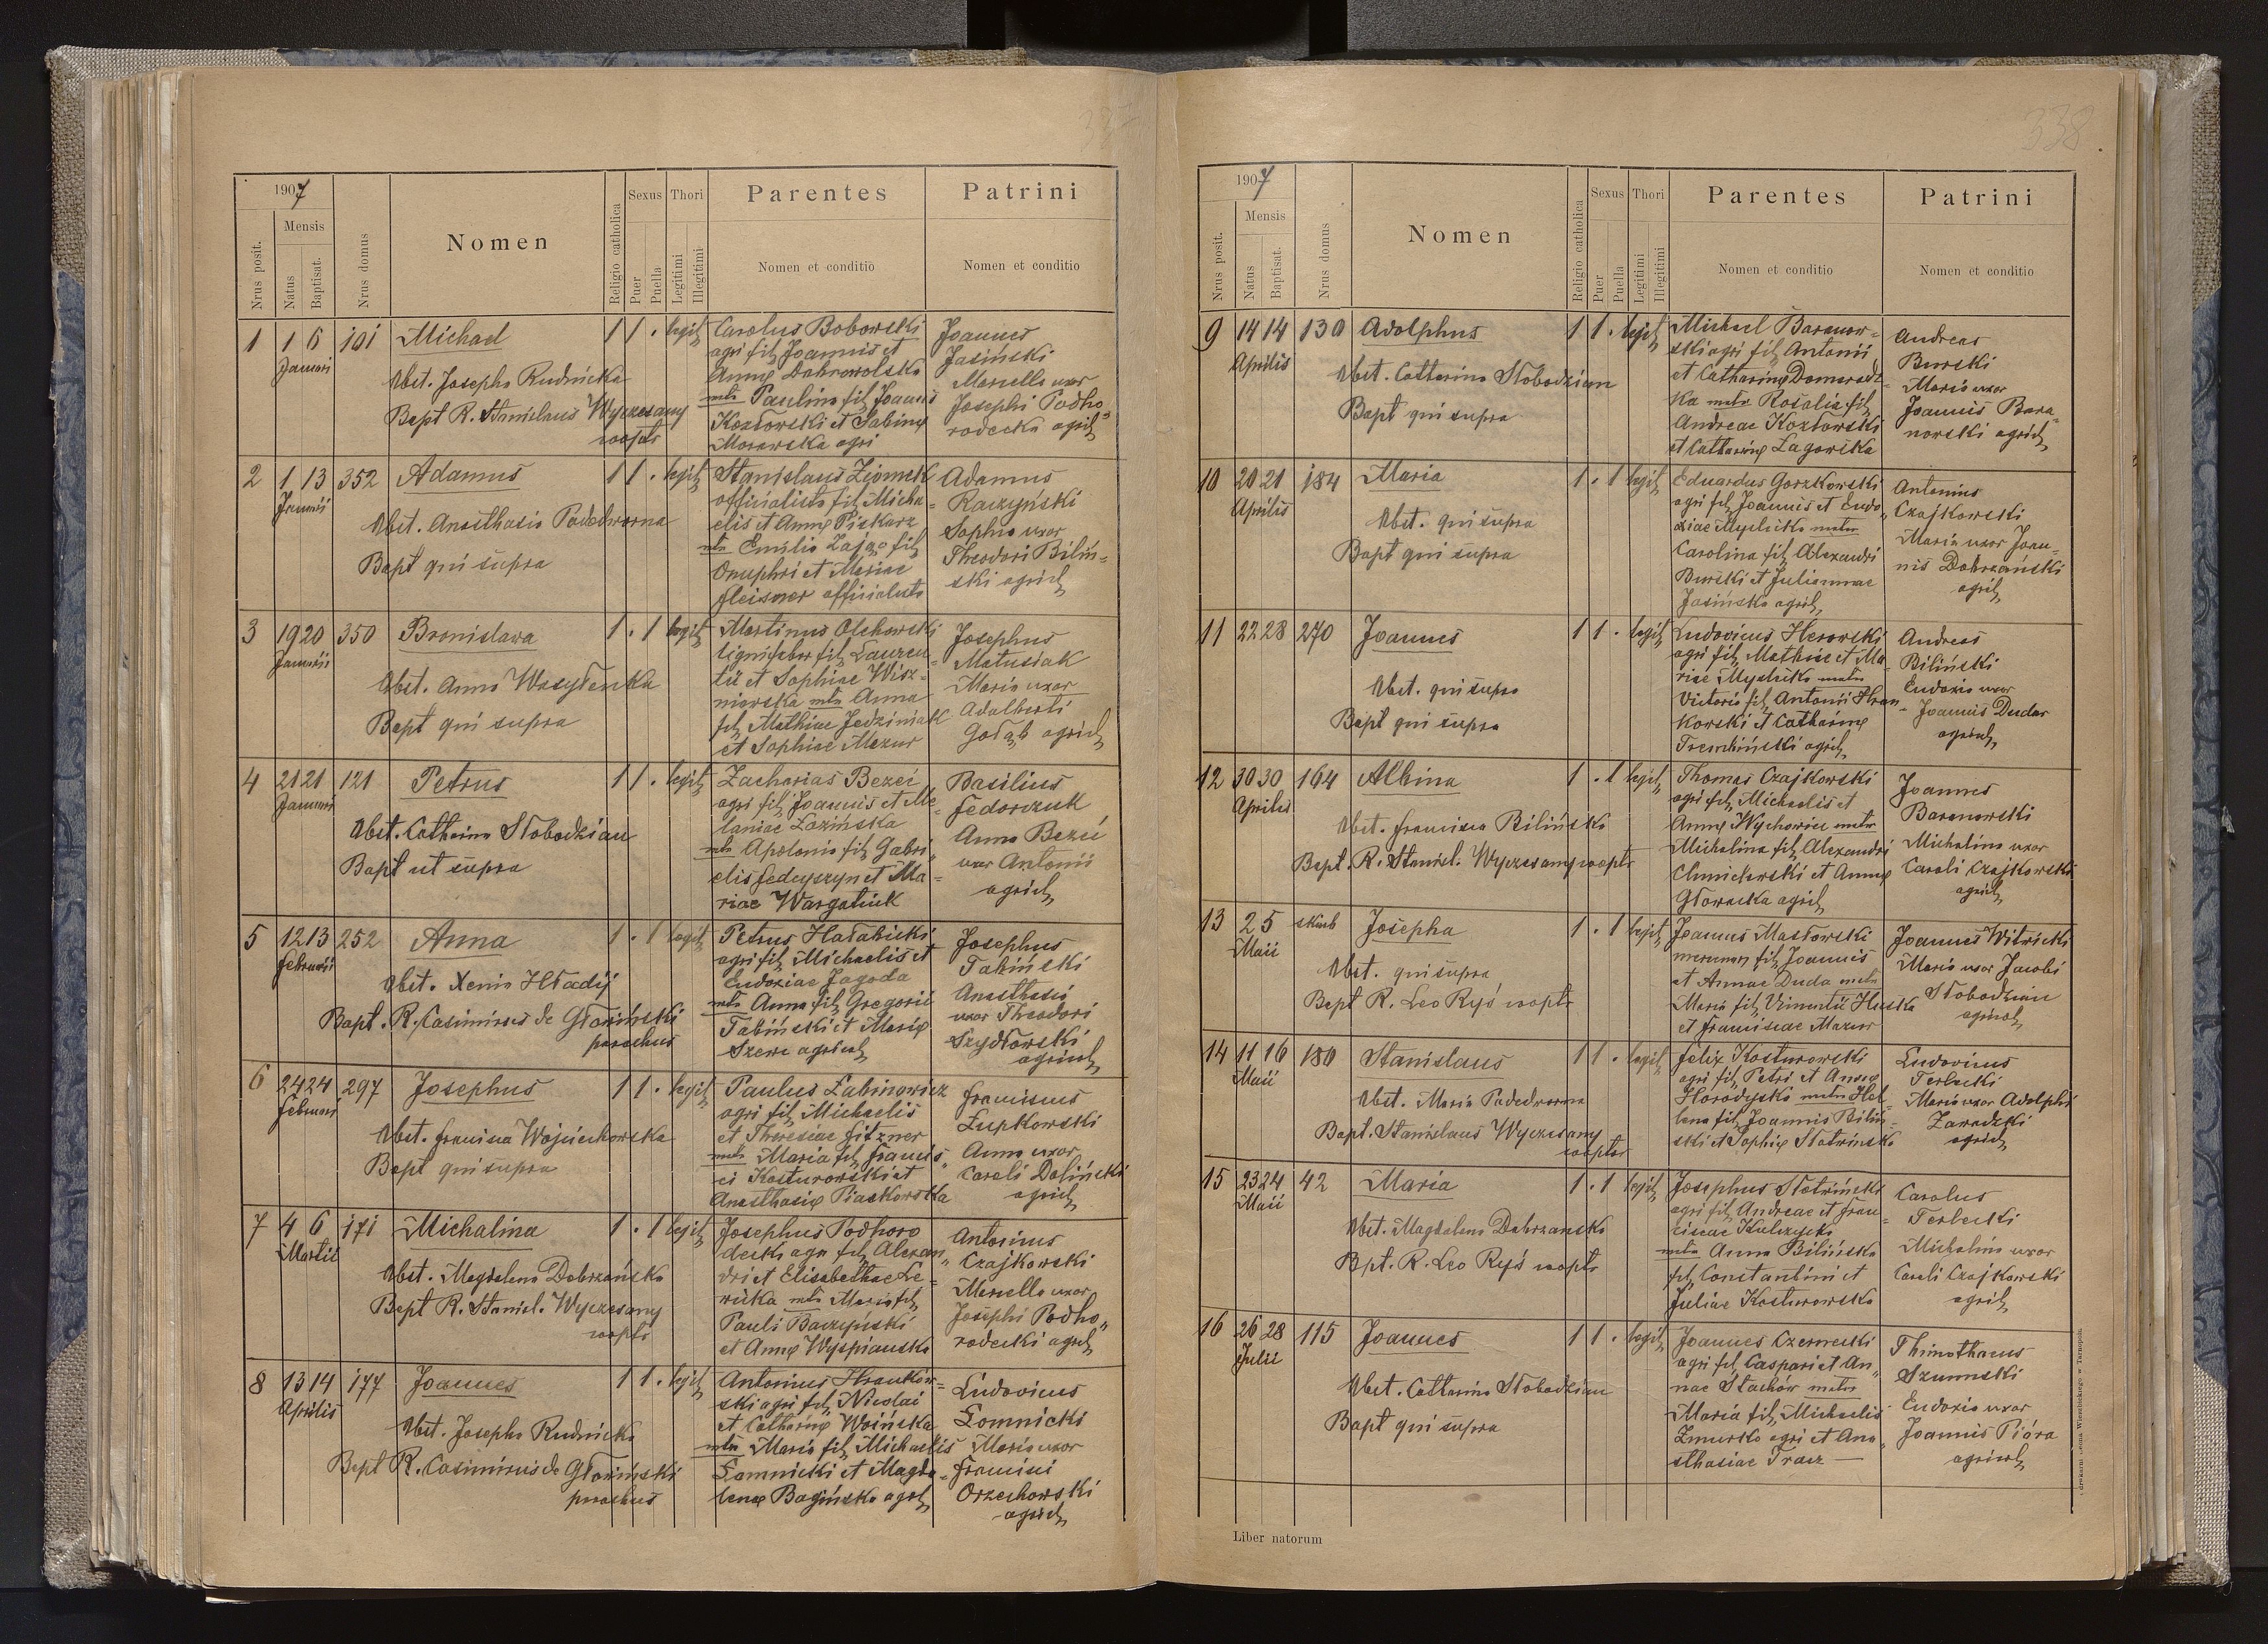 337
1907
Mensis
Nrus posit.
Natus
Baptisat.
Nrus domus
Nomen
Religio catholica
Sexus
Puer
Puella
Thori
Legitimi
Illegitimi
Parentes
Nomen et conditio
Patrini
Nomen et conditio
1 1 6 101 Michael 1 1 . legit
Januari
Obst. Josepha Rudnicka
Bapt R. Stanislaus Wyczesany
coopts
Carolus Bobowski
agri fil Joannis et
Annę Dobrowolska
mtr Paulina fil Joannis
Kozłowski et Sabinę
Morawska agri
Joannes
Jasiński
Marcella uxor
Josephi Podho
rodecka agricl
2 1 13 352 Adamus 1 1 . legit
Januarii
Obst. Anasthasia Padedworna
Bapt qui supra
Stanislaus Ziomek
officialista fil Micha
elis et Annę Piskarz
mtr Emilia Zając fil
Onuphri et Mariae
Fleisner officialista
Adamus
Raczyński
Sophia uxor
Theodori Biliń-
ski agricl
3 19 20 350 Bronislawa 1 . 1 legit
Januarii
Obst. Anna Wasyłenka
Bapt qui supra
Martinus Olchowski
lignifaber fil Lauren
tii et Sophiae Wisz-
niowska mtr Anna
fil Mathiae Jedziniak
et Sophiae Mazur
Josephus
Matusiak
Maria uxor
Adalberti
Gołąb agricl
4 21 21 121 Petrus 1 1 . legit
Januari
Obst. Catharina Słobodzian
Bapt ut supra
Zacharias Bezei
agri fil Joannis et Me-
laniae Łozińska
mtr Apolonia fil Gabri
elis Fedeyszyn et Ma-
riae Wargatiuk
Basilius
Fedorczuk
Anna Bezei
uxor Antonii
agricl
5 12 13 252 Anna 1 . 1 legit
Februarii
Obst. Xenia Hładij
Bapt. R. Casimirus de Głoziński
parochus
Petrus Hałabicki
agri fil Michaelis et
Eudoxiae Jagoda
mtr Anna fil Gregorii
Tabiński et Marię
Szewc agricol
Josephus
Tabiński
Anasthasia
uxor Theodori
Szydłowski
agricol
6 24 24 297 Josephus 1 1 . legit
Februari
Obst. Francisca Wojciechowska
Bapt qui supra
Paulus Łabinowicz
agri fil Michaelis
et Theresiae Fitzner
mtr Maria fil Francis
ci Kosturowski et
Anasthasię Piaskowska
Franciscus
Łupkowski
Anna uxor
Caroli Doliński
agricl
7 4 6 171 Michalina 1 . 1 legit
Martii
Obst. Magdalena Dobrzańska
Bapt R. Stanisl. Wyczesany
coopts
Josephus Podhoro
decki agri fil Alexan
dri et Elisabethae Le-
wicka mtr Maria fil
Pauli Baczyński
et Annę Wyspianska
Antonius
Czajkowski
Marcella uxor
Josephi Podho
rodecki agricl
8 13 14 177 Joannes 1 1 . legit
Aprilis
Obst. Josepha Rudnicka
Bapt R. Casimirus de Głoziński
parochus
Antonius Hrankow-
ski agri fil Nicolai
et Catharinę Woińska
mtr Maria fil Michaelis
Łomnicki et Magda-
lenę Bagińska agrl
Ludovicus
Łomnicki
Maria uxor
Francisci
Orzechowski
agricl
338
1907
Mensis
Nrus posit.
Natus
Baptisat.
Nrus domus
Nomen
Religio catholica
Sexus
Puer
Puella
Thori
Legitimi
Illegitimi
Parentes
Nomen et conditio
Patrini
Nomen et conditio
9 14 14 130 Adolphus 1 1 . legit
Aprilis
Obst. Catharina Słobodzian
Bapt qui supra
Michael Baranow-
ski agri fil Antonii
et Catharinę Domaradz-
ka matr Rosalia fil
Andreae Kozłowski
et Catharinę Zagorska
Andreas
Burski
Maria uxor
Joannis Bara
nowski agricl
10 20 21 184 Maria 1 . 1 legit
Aprilis
Obst. qui supra
Bapt qui supra
Eduardus Gorzkowski
agri fil Joannis et Eudo
xiae Myslicka mater
Carolina fil Alexandri
Burski et Juliannae
Jasińska agricl
Antonius
Czajkowski
Maria uxor Joan-
nis Dobrzański
agricl
11 22 28 270 Joannes 1 1 . legit
Obst. qui supra
Bapt qui supra
Ludovicus Herowski
agri fil Mathiae et Ma
riae Myslicka mater
Victoria fil Antonii Hran
kowski et Catharinę
Trembiński agricl
Andreas
Biliński
Eudoxia uxor
Joannis Dudar
agricol
12 30 30 164 Albina 1 . 1 legit
Aprilis
Obst. Francisca Biliński
Bapt. R. Stanisl. Wyczesany coopts
Thomas Czajkowski
agri fil Michaelis et
Annę Wychowiec matr
Michalina fil Alexandri
Chmielewski et Annę
Głowacka agricl
Joannes
Baranowski
Michalina uxor
Caroli Czajkowski
agricl
13 2 5 skarb Josepha 1 . 1 legit
Maii
Obst. qui supra
Bapt R. Leo Ryś coopts
Joannes Masłowski
mercenar fil Joannis
et Annae Duda matr
Maria fil Vincentii Huska
et Franciscae Mazur
Joannes Witwicki
Maria uxor Jacobi
Słobodzian
agricol
14 11 16 180 Stanislaus 1 1 . legit
Maii
Obst. Maria Padedworna
Bapt. Stanislaus Wyczesany
cooptor
Felix Kosturowski
agri fil Petri et Annę
Horodyska matr Hel-
lena fil Joannis Biliń-
ski et Sophię Słotwińska
Ludovicus
Terlecki
Maria uxor Adolphi
Zawadzki
agricl
15 23 24 42 Maria 1 . 1 legit
Maii
Obst. Magdalena Dobrzanska
Bpt. R. Leo Ryś coopts
Josephus Słotwiński
agri fil Andreae et Fran
ciscae Kulczycki
mtr Anna Bilińska
fil Constantini et
Juliae Kosturowska
Carolus
Terlecki
Michalina uxor
Caroli Czajkowski
agricl
16 26 28 115 Joannes 1 1 . legit
Julii
Obst. Catharina Słobodzian
Bapt qui supra
Joannes Czarnecki
agri fil Caspari et An
nae Stachów mater
Maria fil Michaelis
Zmursko agri et Ana
sthasiae Tracz —
Thimothaeus
Szumski
Eudoxia uxor
Joannis Pióra
agricol
Liber natorum
z drukarni Leona Wierzbickiego w Tarnopolu